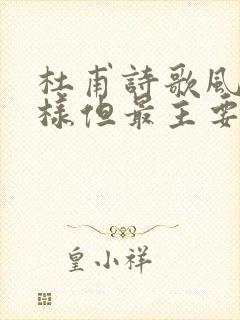 杜甫詩歌風
樣但最主要
皇小祥